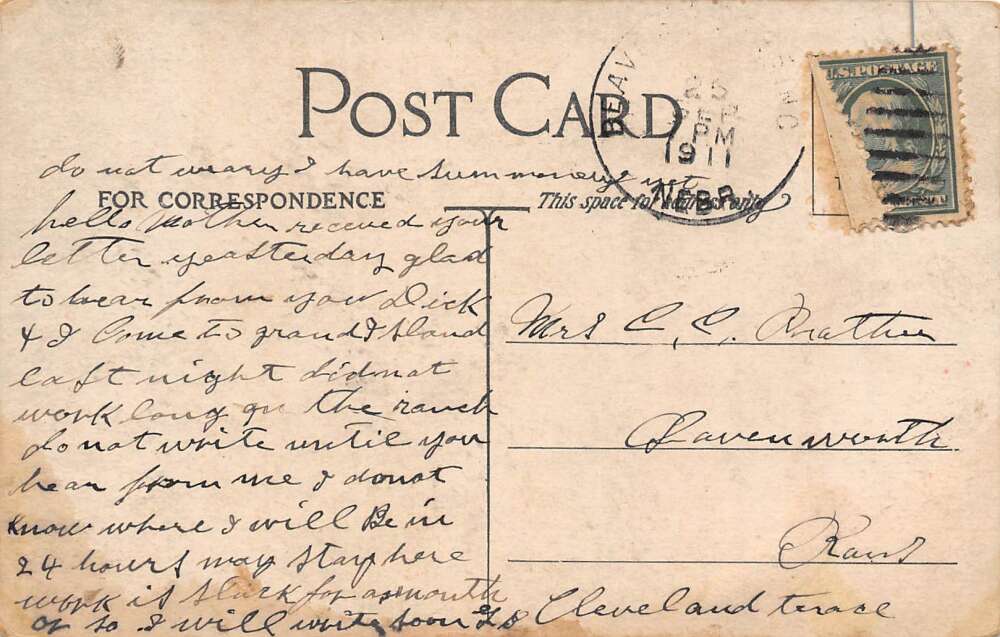 POST CARD
25
SEP
PM
1911
NEBR.
U.S. POSTAGE
do not weary I have sum money yet
FOR CORRESPONDENCE
This space for address only
hello Mother receved your
letter yeasterday glad
to hear from you Dick
& I Come to grand Island
last night did not
work long on the ranch
do not write until you
hear from me I do not
know where I will Be in
24 hours may stay here
work is slack for a month
or so I will write soon
Mrs C, C, Prather
Leavenworth
Kans
Cleveland terace